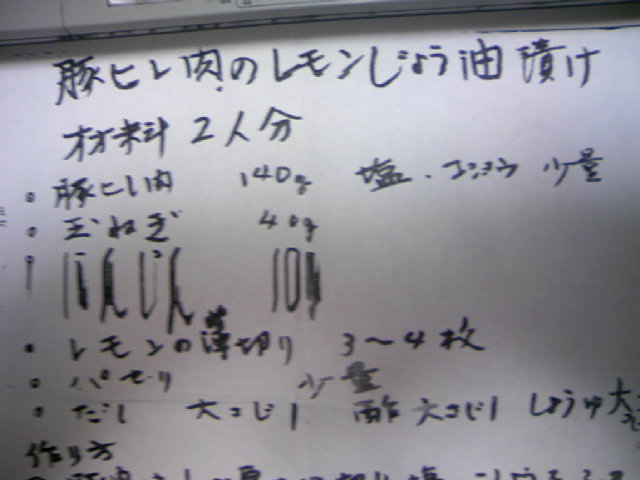 豚ヒレ肉のレモンじょう油漬け
材料 2人分
・豚ヒレ肉 140g 塩・コショウ 少量
・玉ねぎ 40g
・にんじん 10
・レモンの薄切り 3〜4枚
・パセリ 少量
・だし 大さじ1 酢大さじ1 しょうゆ大
作り方